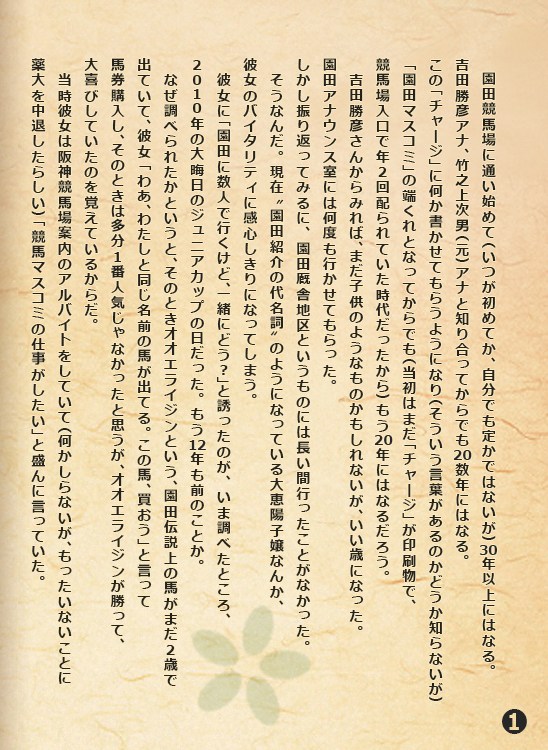 園田競馬場に通い始めて(いつが初めてか、自分でも定かではないが)30年以上にはなる。
吉田勝彦アナ、竹之上次男(元)アナと知り合ってからでも20数年にはなる。
この「チャージ」に何か書かせてもらうようになり(そういう言葉があるのかどうか知らないが)
「園田マスコミ」の端くれとなってからでも(当初はまだ「チャージ」が印刷物で、
競馬場入口で年2回配られていた時代だったから)もう20年にはなるだろう。
吉田勝彦さんからみれば、まだ子供のようなものかもしれないが、いい歳になった。
園田アナウンス室には何度も行かせてもらった。
しかし振り返ってみるに、園田厩舎地区というものには長い間行ったことがなかった。
そうなんだ。現在〝園田紹介の代名詞〟のようになっている大恵陽子嬢なんか、
彼女のバイタリティに感心しきりになってしまう。
彼女に「園田に数人で行くけど、一緒にどう?」と誘ったのが、いま調べたところ、
2010年の大晦日のジュニアカップの日だった。もう12年も前のことか。
なぜ調べられたかというと、そのときオオエライジンという、園田伝説上の馬がまだ2歳で
出ていて、彼女「わあ、わたしと同じ名前の馬が出てる。この馬、買おう」と言って
馬券購入し、そのときは多分1番人気じゃなかったと思うが、オオエライジンが勝って、
大喜びしていたのを覚えているからだ。
当時彼女は阪神競馬場案内のアルバイトをしていて(何かしらないが、もったいないことに
薬大を中退したらしい)「競馬マスコミの仕事がしたい」と盛んに言っていた。
1